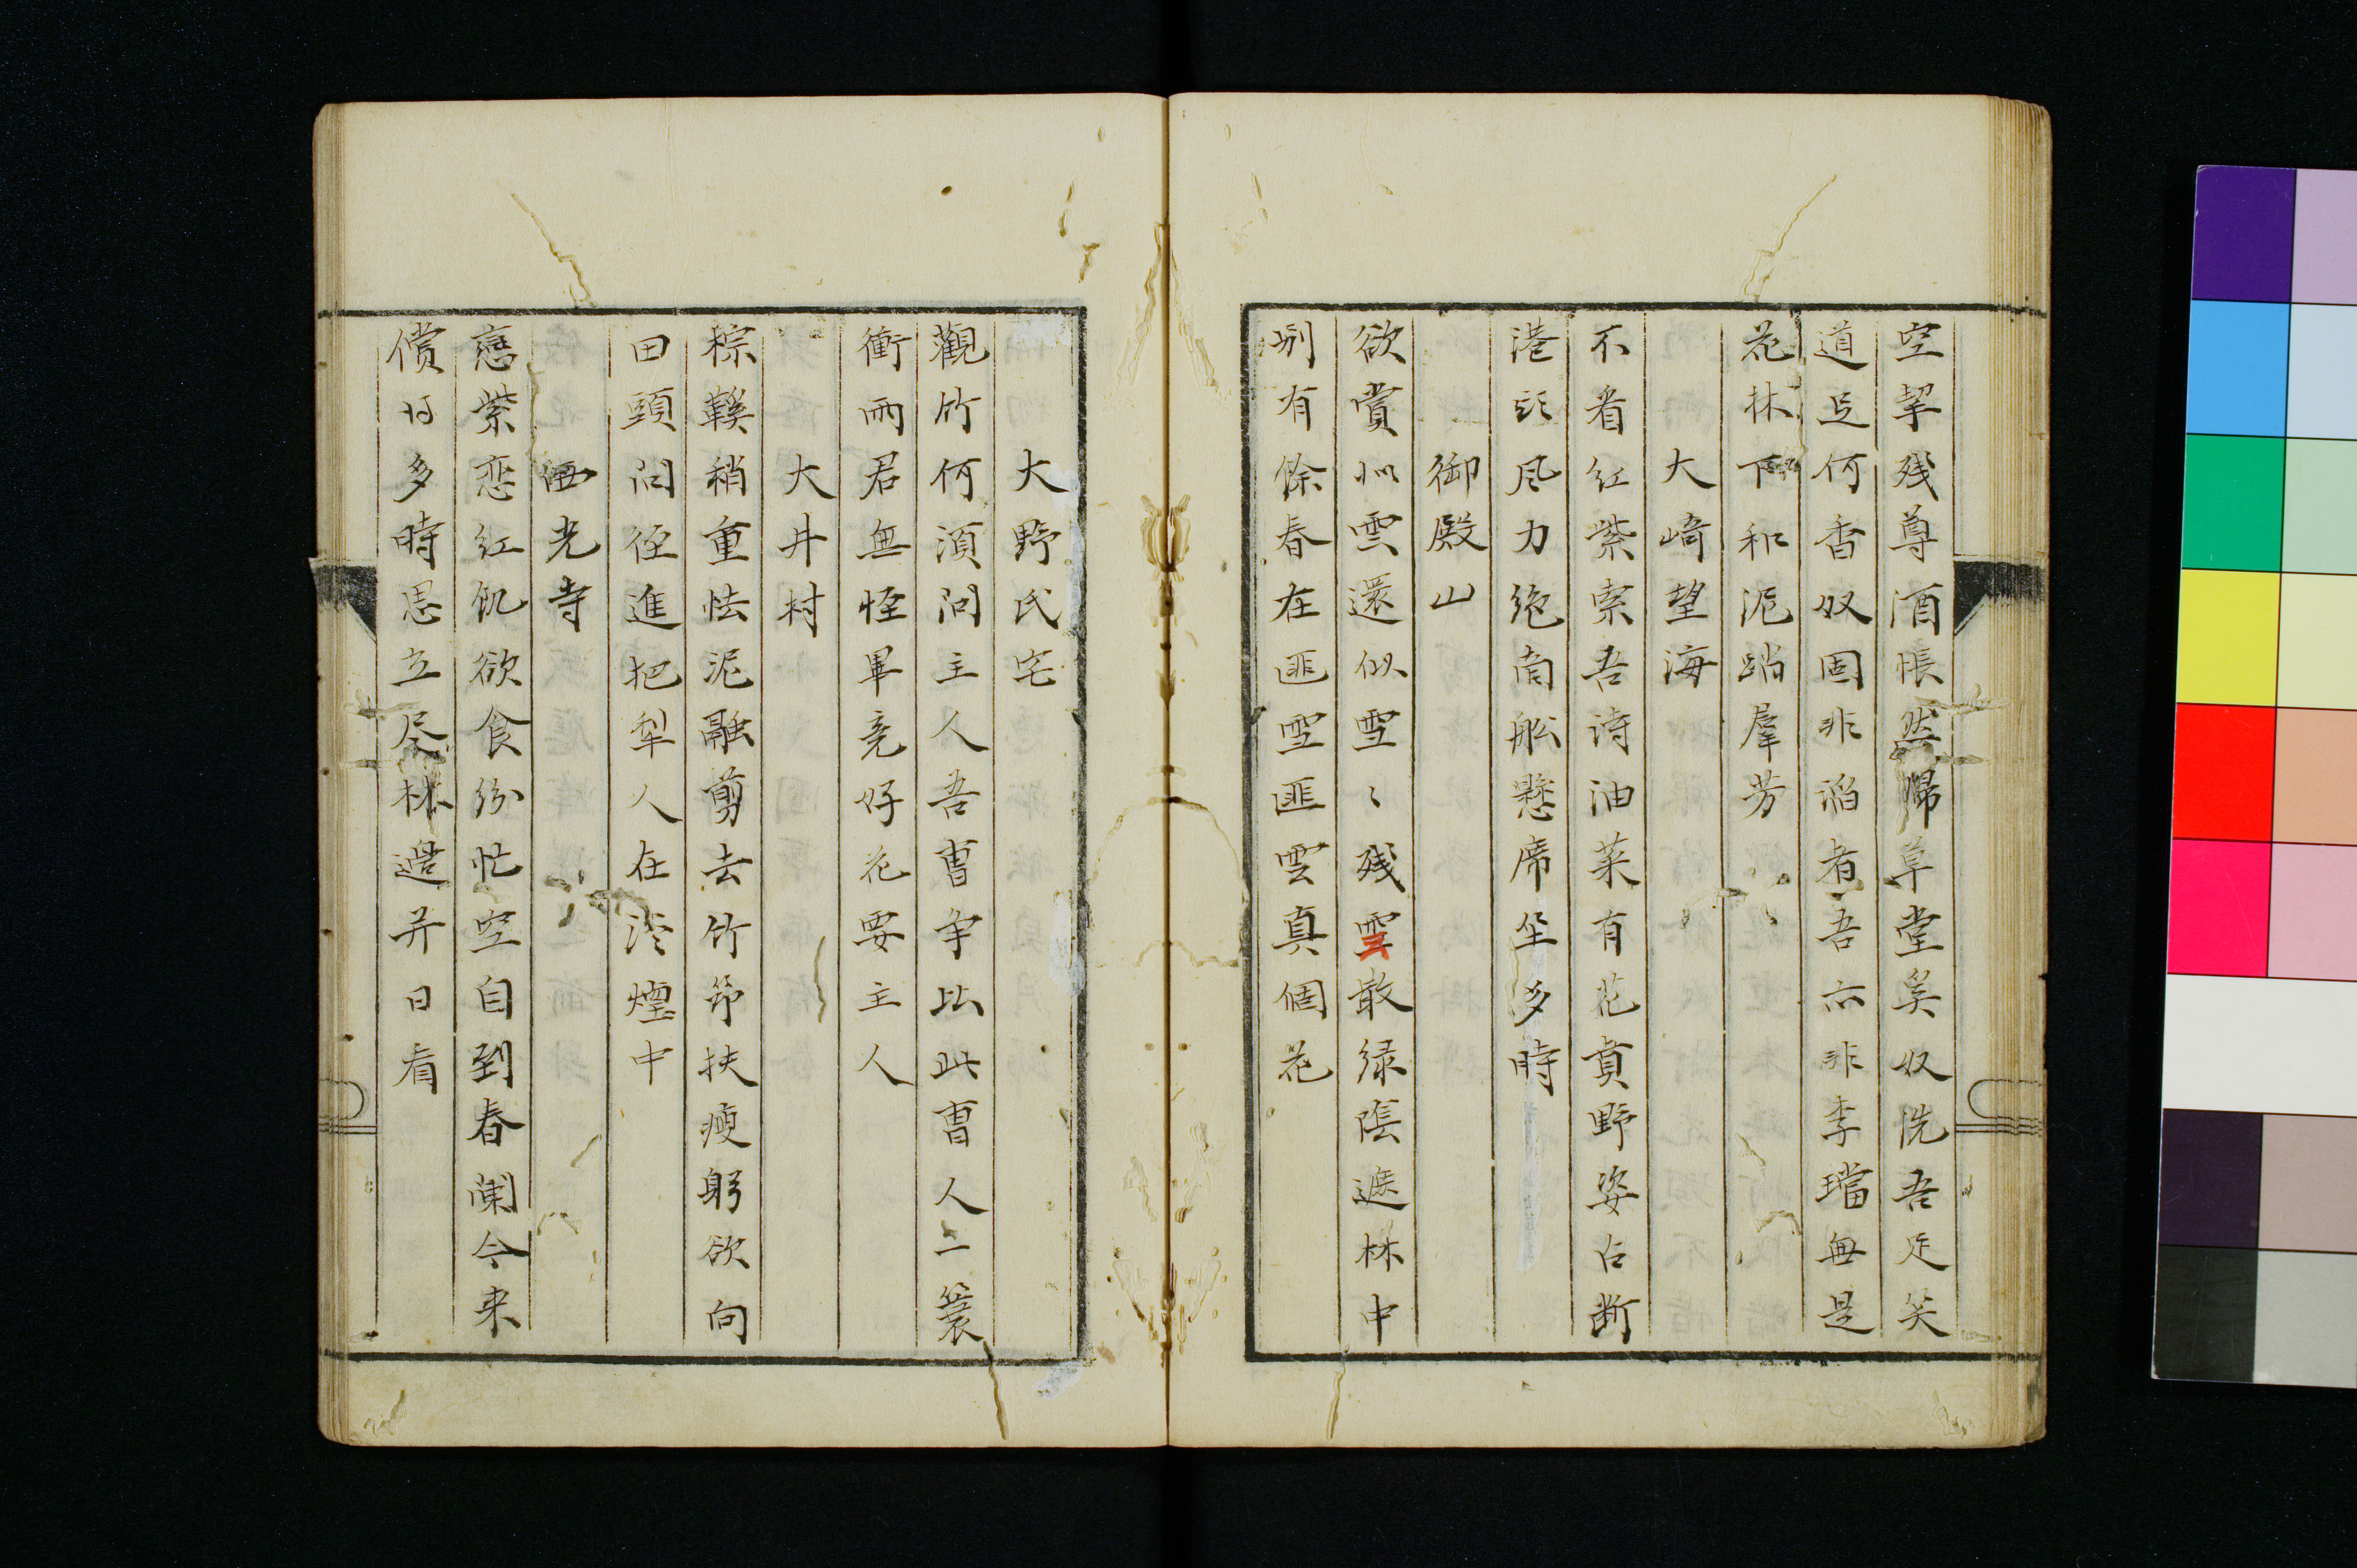 空挈残尊酒悵然歸草堂奚奴洗吾足笑
道足何香奴固非諂者吾亦非李璫無是
花林下和泥蹈羣芳
大崎望海
不看紅紫索吾诗油菜有花真野姿占断
港头风力绝南舩懸席坐多時
御殿山
欲賞似雲還似雪〻残雲敢绿陰遮林中
別有餘春在匪雪匪雲真個花
大野氏宅
觀竹何須问主人吾曹争比此曹人一簑
衝雨君無怪畢竟好花要主人
大井村
棕鞵稍重怯泥融剪去竹笻扶瘦躬欲向
田頭问径進把犁人在淡煙中
西光寺
戀紫恋红飢欲食纷忙空自到春闌今来
償得多時思立尽林邊弄日看